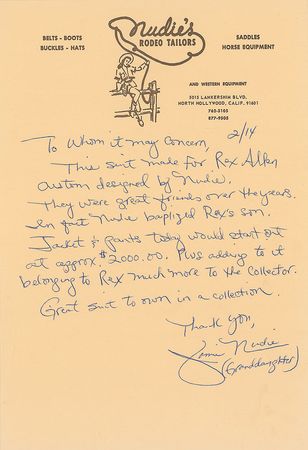 Nudie's
RODEO TAILORS
BELTS - BOOTS
BUCKLES - HATS
SADDLES
HORSE EQUIPMENT
AND WESTERN EQUIPMENT
5015 LANKERSHIM BLVD.
NORTH HOLLYWOOD, CALIF. 91601
762-3105
877-9505
2/14
To Whom it may Concern,
This suit made for Rex Allen
Custom designed by Nudie.
They were great friends over the years.
In fact Nudie baptized Rex's son.
Jacket & pants today would start out
at approx. $2000.00. Plus adding to it
belonging to Rex much more to the Collector.
Great suit to own in a collection.
Thank you,
Jamie Nudie
(Granddaughter)